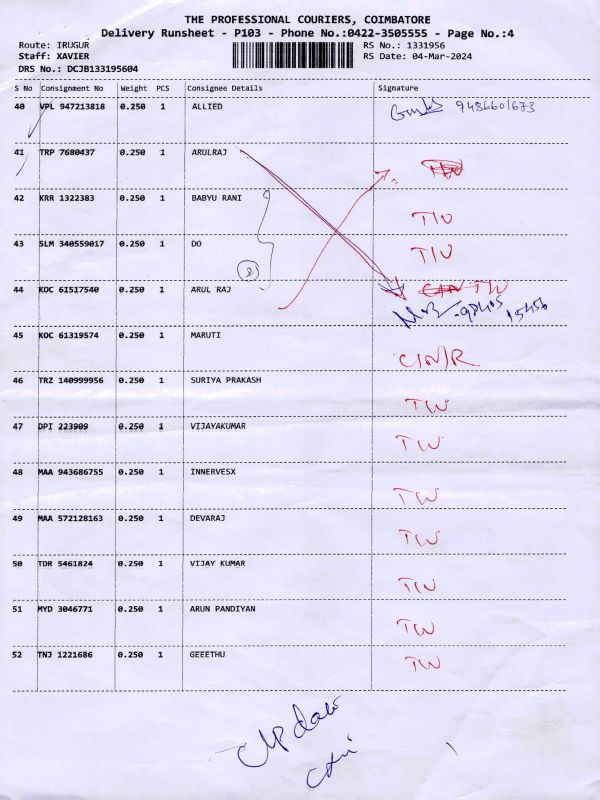 THE PROFESSIONAL COURIERS, COIMBATORE
Delivery Runsheet - P103 - Phone No.:0422-3505555 - Page No.:4
Route: IRUGUR RS No.: 1331956
Staff: XAVIER RS Date: 04-Mar-2024
DRS No.: DCJB133195604
S No Consignment No Weight PCS Consignee Details Signature
40 VPL 947213818 0.250 1 ALLIED 9486601673
41 TRP 7680437 0.250 1 ARULRAJ
42 KRR 1322383 0.250 1 BABYU RANI TW
43 SLM 340559017 0.250 1 DO TW
44 KOC 61517540 0.250 1 ARUL RAJ TW
45 KOC 61319574 0.250 1 MARUTI CN/R
46 TRZ 140999956 0.250 1 SURIYA PRAKASH TW
47 DPI 223909 0.250 1 VIJAYAKUMAR TW
48 MAA 943686755 0.250 1 INNERVESX TW
49 MAA 572128163 0.250 1 DEVARAJ TW
50 TDR 5461824 0.250 1 VIJAY KUMAR TW
51 MYD 3046771 0.250 1 ARUN PANDIYAN TW
52 TNJ 1221686 0.250 1 GEEETHU TW